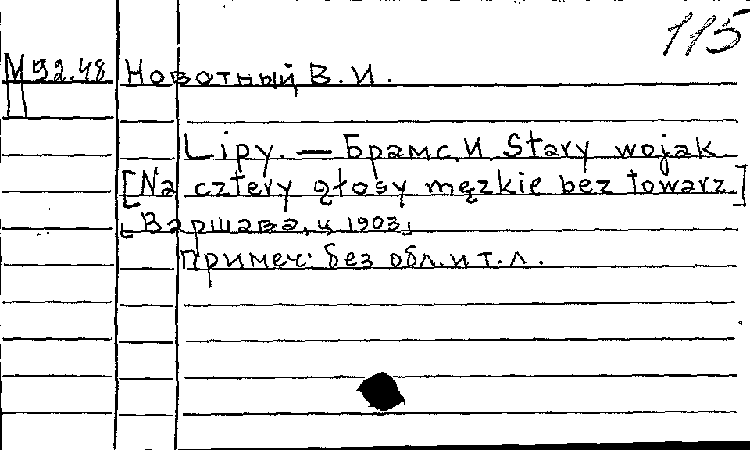 115
М 92.48 Новотный В. И.
Lipy. — Брамс, И Stary wojak
[Na cztery głosy męzkie bez towarz.]
[Варшава, ц. 1903]
Примеч: без обл. и т. л.